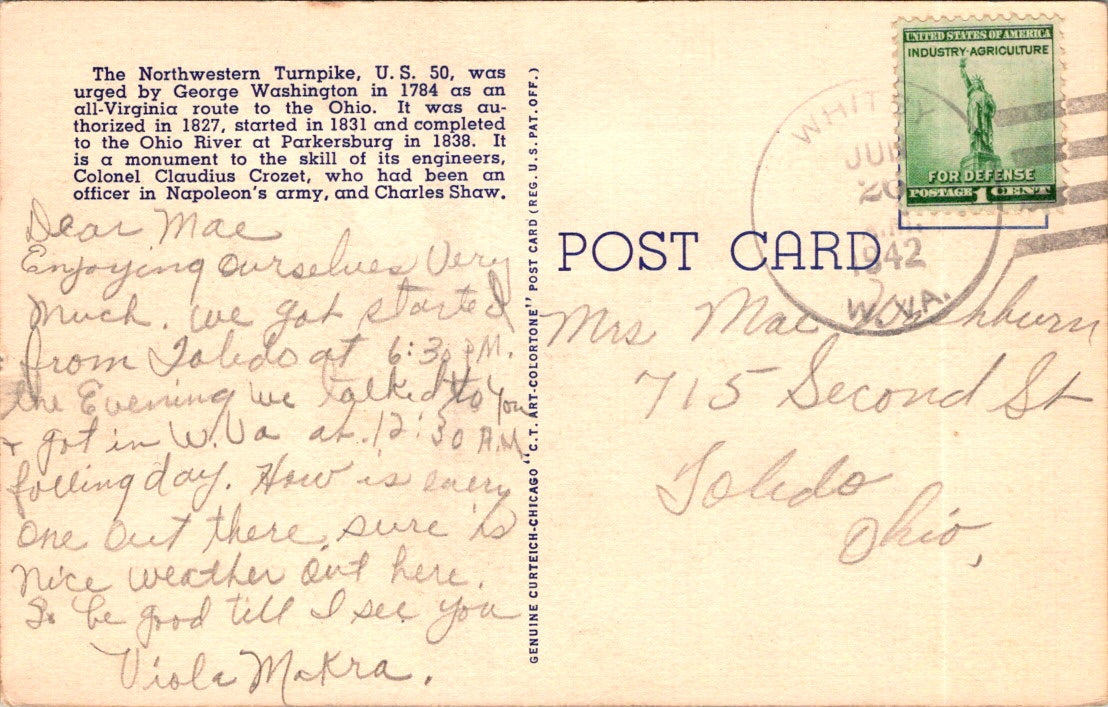 The Northwestern Turnpike, U. S. 50, was
urged by George Washington in 1784 as an
all-Virginia route to the Ohio. It was au-
thorized in 1827, started in 1831 and completed
to the Ohio River at Parkersburg in 1838. It
is a monument to the skill of its engineers,
Colonel Claudius Crozet, who had been an
officer in Napoleon's army, and Charles Shaw.
Dear Mae
Enjoying ourselves Very
much. we got started
from Toledo at 6:30 P.M.
the Evening we talked to you
+ got in W. Va at. 12:30 A.M
folling day. How is every
one out there, sure is
nice weather out here.
So be good till I see you
Viola
GENUINE CURTEICH-CHICAGO "C.T. ART-COLORTONE" POST CARD (REG. U.S. PAT. OFF.)
UNITED STATES OF AMERICA
INDUSTRY·AGRICULTURE
FOR DEFENSE
POSTAGE 1 CENT
20
1942
W. VA.
POST CARD
Mrs Mae Washburn
715 Second St
Toledo
Ohio,